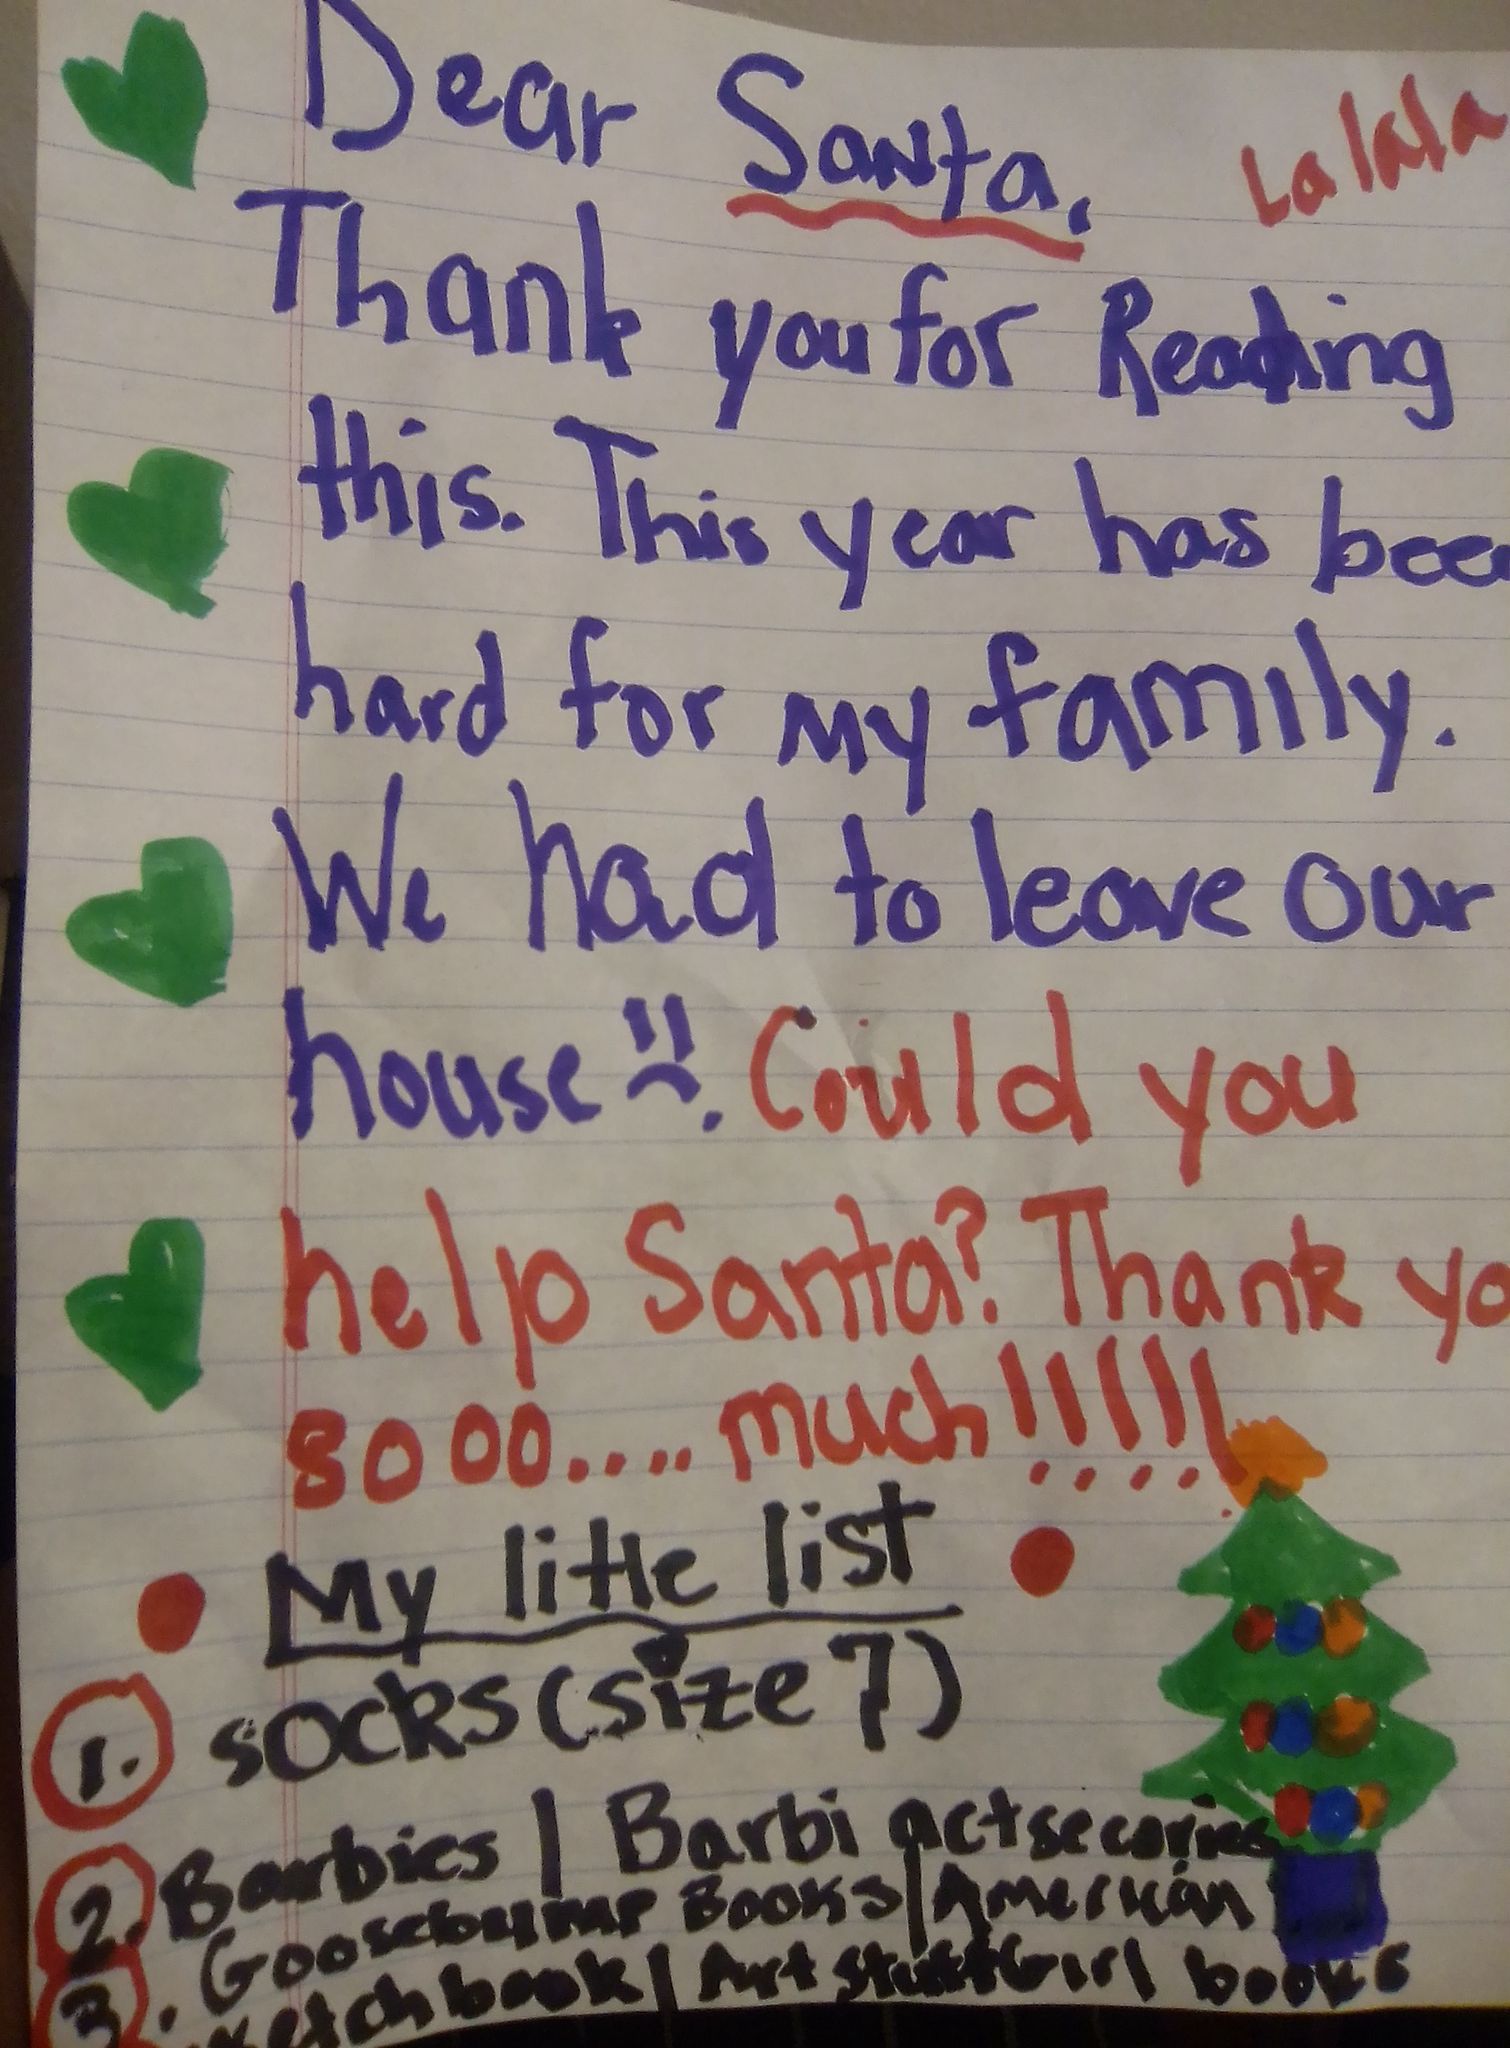 Dear Santa, La lala
Thank you for Reading
this. This year has been
hard for my family.
We had to leave our
house. Could you
help Santa? Thank yo
sooo..... much!!!!!!
My little list
1. socks (size 7)
2. Barbies | Barbi actsecories
3. Goosebump Books | American
sketchbook | Art stuff Girl books